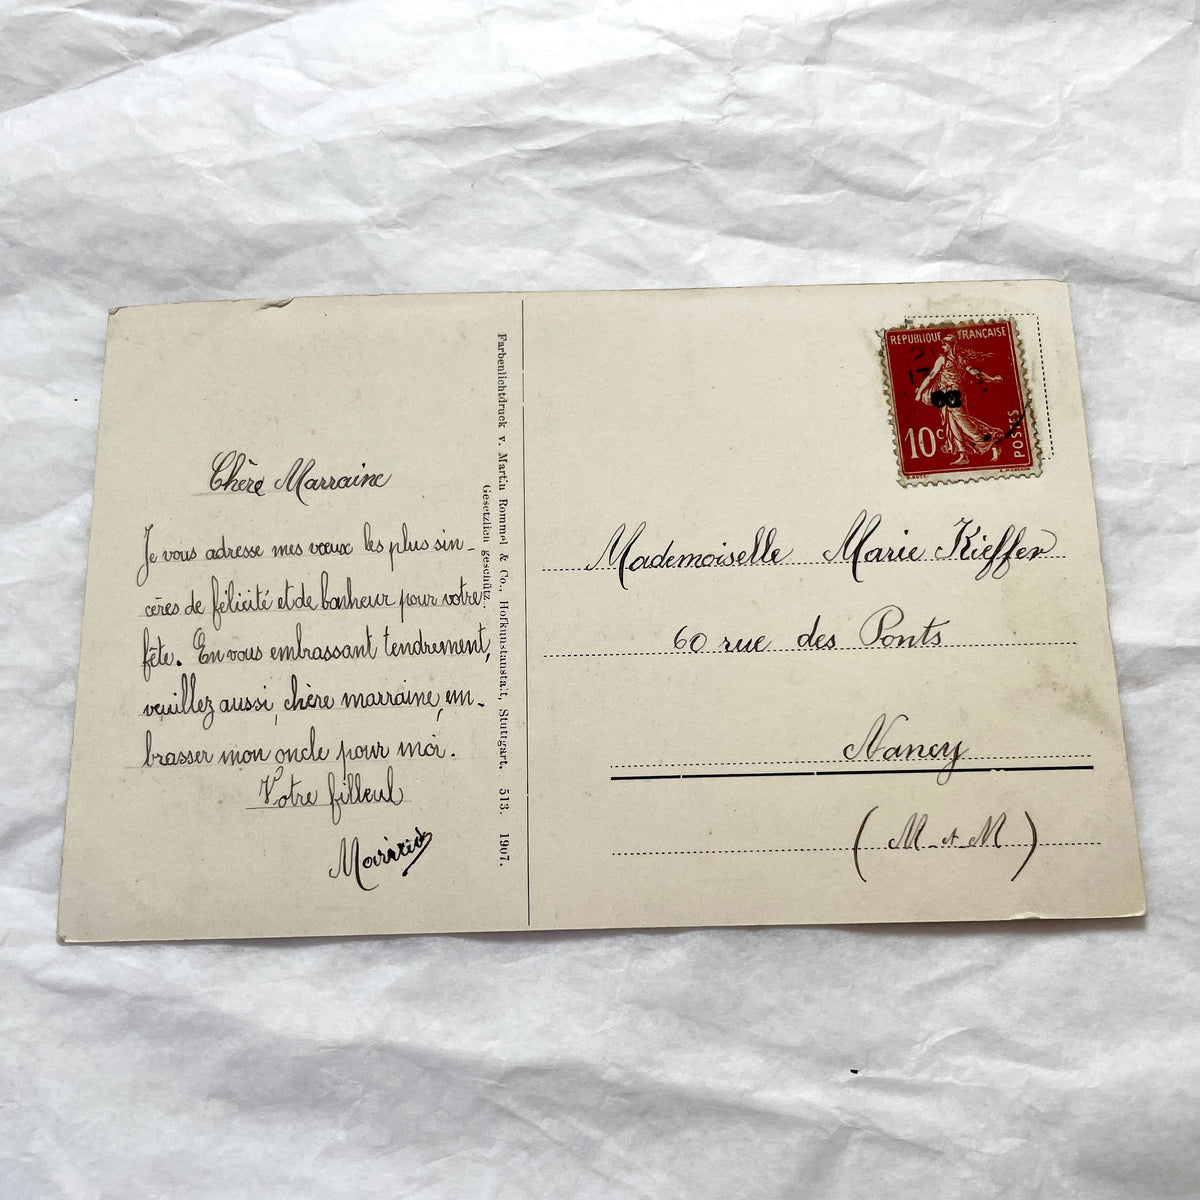 Chère Marraine
Je vous adresse mes vœux les plus sin-
cères de félicité et de bonheur pour votre
fête. En vous embrassant tendrement,
veuillez aussi, chère marraine, em-
brasser mon oncle pour moi.
Votre filleul
Farbenlichtdruck v. Martin Rommel & Co., Hofkunstanstalt, Stuttgart. 513. 1907.
Gesetzlich geschützt.
REPUBLIQUE FRANÇAISE
10c
POSTES
Mademoiselle Marie Kieffer
60 rue des Ponts
Nancy
(M-et-M)